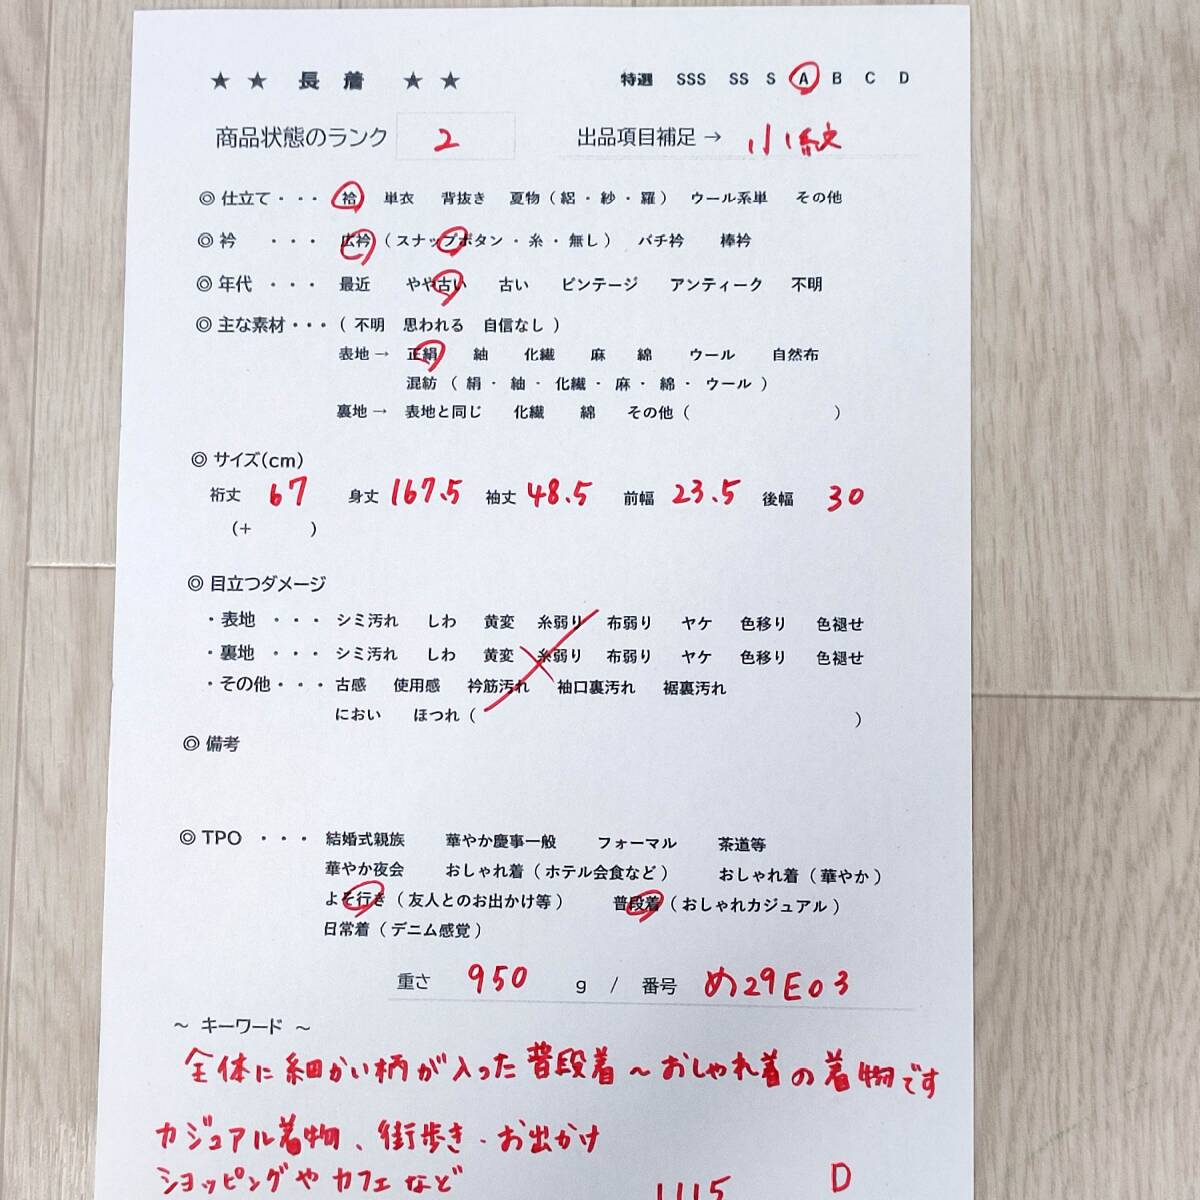 ★ ★ 長 着 ★ ★ 特選 SSS SS S A B C D
商品状態のランク 2 出品項目補足 → 小紋
◎ 仕立て ・・・ 袷 単衣 背抜き 夏物 ( 絽 ・ 紗 ・ 羅 ) ウール系単 その他
◎ 衿 ・・・ 広衿 ( スナップボタン ・ 糸 ・ 無し ) バチ衿 棒衿
◎ 年代 ・・・ 最近 やや古い 古い ビンテージ アンティーク 不明
◎ 主な素材 ・・・ ( 不明 思われる 自信なし )
表地 → 正絹 紬 化繊 麻 綿 ウール 自然布
混紡 ( 絹 ・ 紬 ・ 化繊 ・ 麻 ・ 綿 ・ ウール )
裏地 → 表地と同じ 化繊 綿 その他 ( )
◎ サイズ(cm)
裄丈 67 身丈 167.5 袖丈 48.5 前幅 23.5 後幅 30
(+ )
◎ 目立つダメージ
・表地 ・・・ シミ汚れ しわ 黄変 糸弱り 布弱り ヤケ 色移り 色褪せ
・裏地 ・・・ シミ汚れ しわ 黄変 糸弱り 布弱り ヤケ 色移り 色褪せ
・その他 ・・・ 古感 使用感 衿筋汚れ 袖口裏汚れ 裾裏汚れ
におい ほつれ ( )
◎ 備考
◎ TPO ・・・ 結婚式親族 華やか慶事一般 フォーマル 茶道等
華やか夜会 おしゃれ着 ( ホテル会食など ) おしゃれ着 ( 華やか )
よそ行き ( 友人とのお出かけ等 ) 普段着 ( おしゃれカジュアル )
日常着 ( デニム感覚 )
重さ 950 g / 番号 め29E03
～ キーワード ～
全体に細かい柄が入った普段着～おしゃれ着の着物です
カジュアル着物、街歩き・お出かけ
ショッピングやカフェなど
1115 D